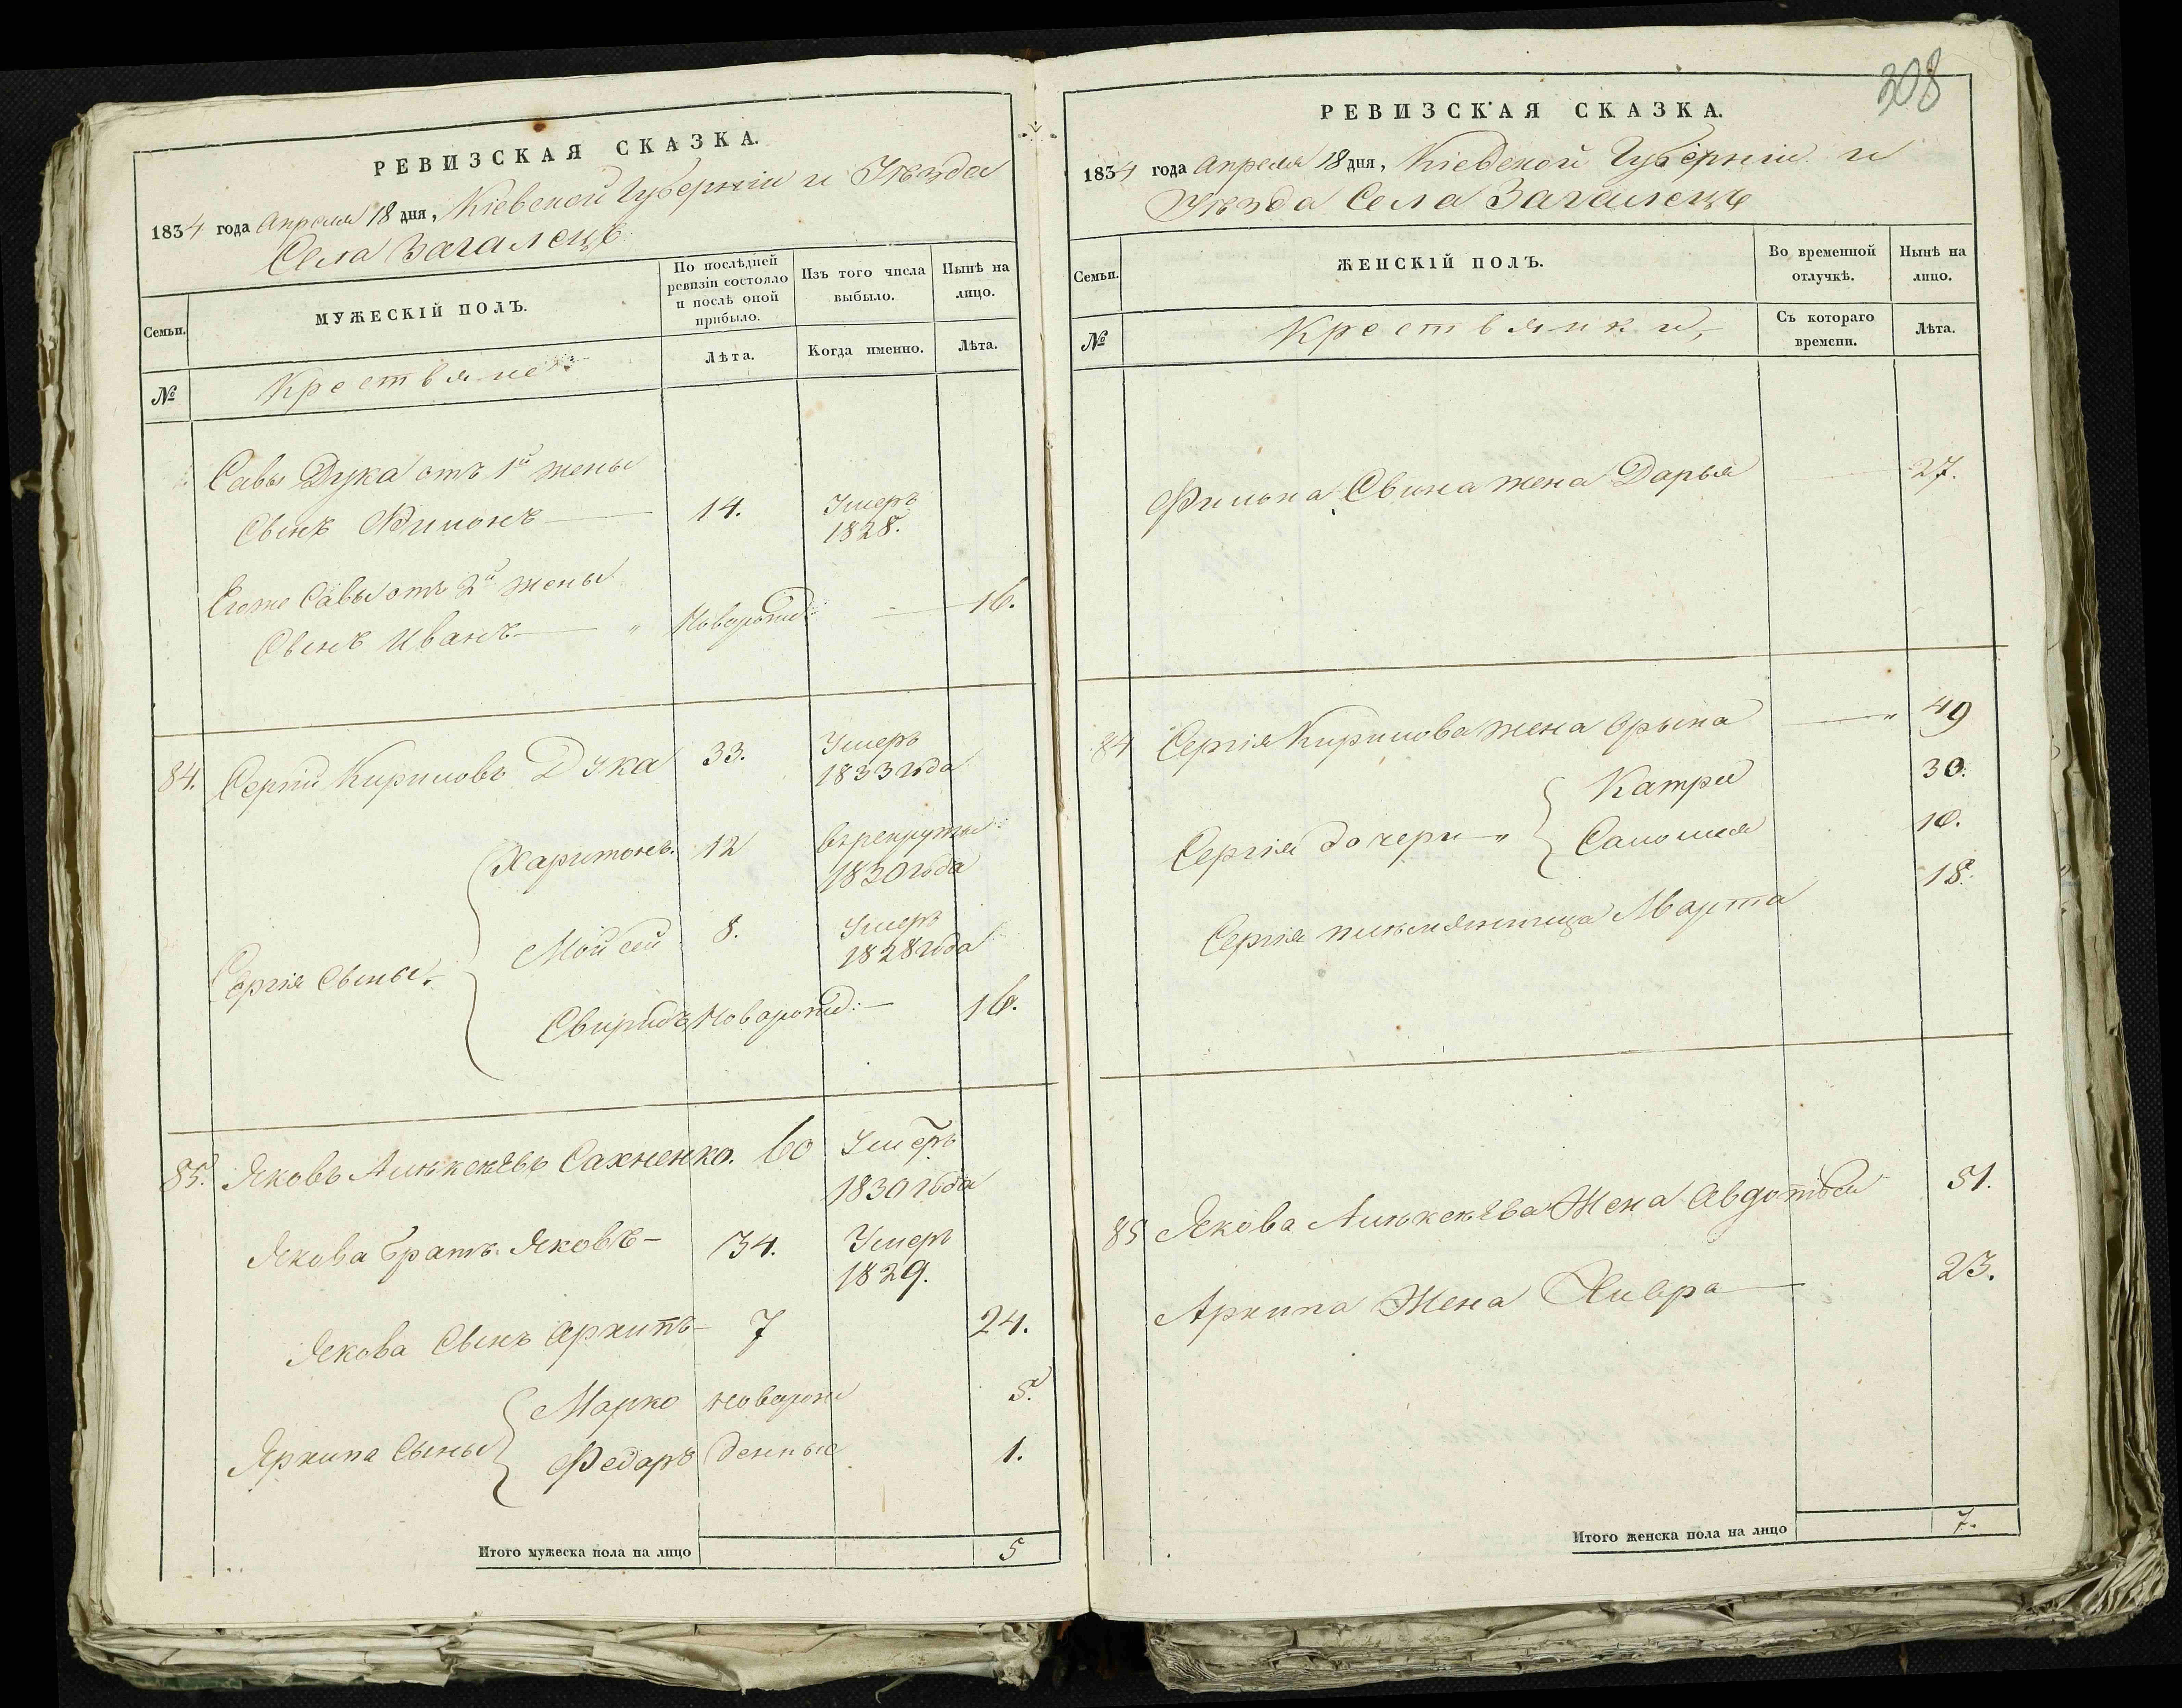 РЕВИЗСКАЯ СКАЗКА.
1834 года Апреля 18 дня, Кіевской Губерніи и Уѣзда
Села Загалецъ
Семьи. МУЖЕСКІЙ ПОЛЪ. По послѣдней ревизіи состояло и послѣ оной прибыло. Изъ того числа выбыло. Нынѣ на лицо.
№ Крестьяне Лѣта. Когда именно. Лѣта.
Савы Дука отъ 1й жены
Сынъ Филонъ 14. Умеръ 1828.
Егоже Савы отъ 2й жены
Сынъ Иванъ " Новорожд: 16.
84. Сергій Кириловъ Дука 33. Умеръ 1833 года
Харитонъ. 12 Врекруты 1830 года
Мойсей 8. Умеръ 1828 года
Сергія Сыны.
Свиридъ Новорожд: 16.
85. Яковъ Алѣксѣевъ Сахненко. 60 Умеръ 1830 года
Якова братъ Яковъ 34. Умеръ 1829.
Якова Сынъ Архипъ 7 24.
Архипа Сыны Марко новорож 5.
Федоръ денные 1.
Итого мужеска пола на лицо 5
308
РЕВИЗСКАЯ СКАЗКА.
1834 года Апреля 18 дня, Кіевской Губерніи и
Уѣзда Села Загалецъ
Семьи. ЖЕНСКІЙ ПОЛЪ. Во временной отлучкѣ. Нынѣ на лицо.
№ Крестьянки, Съ котораго времени. Лѣта.
Филона Сына жена Дарья 27.
84 Сергія Кирилова жена Орына " 49
Катря 30.
Сергія дочери " Саломея 10.
Сергія племянница Марта 18.
85 Якова Алѣксѣева Жена Авдотья 51.
Архипа Жена Хивра 23.
Итого женска пола на лицо 7.